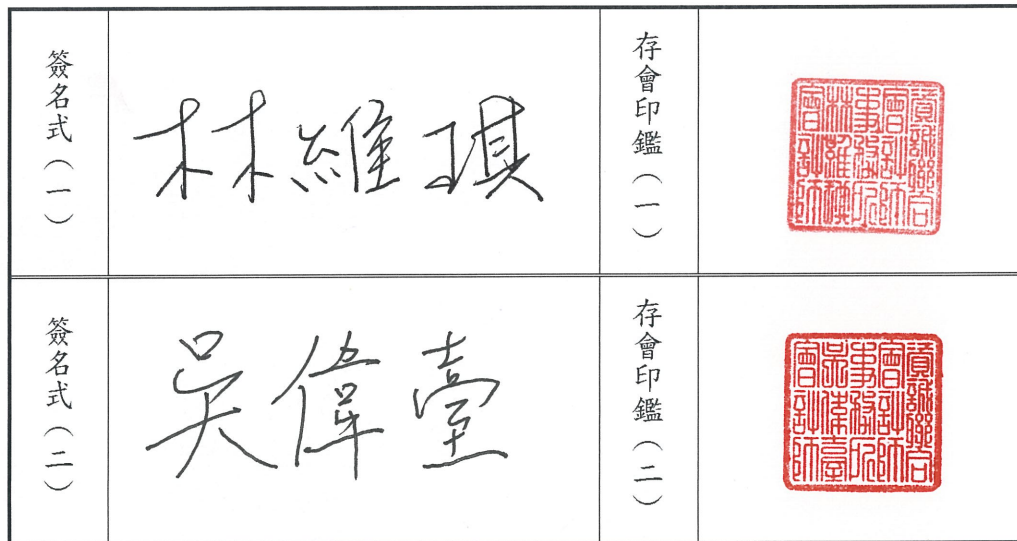 簽名式(一)
林維琪
存會印鑑(一)
資誠聯合會計師事務所林維琪會計師
簽名式(二)
吳偉臺
存會印鑑(二)
資誠聯合會計師事務所吳偉臺會計師